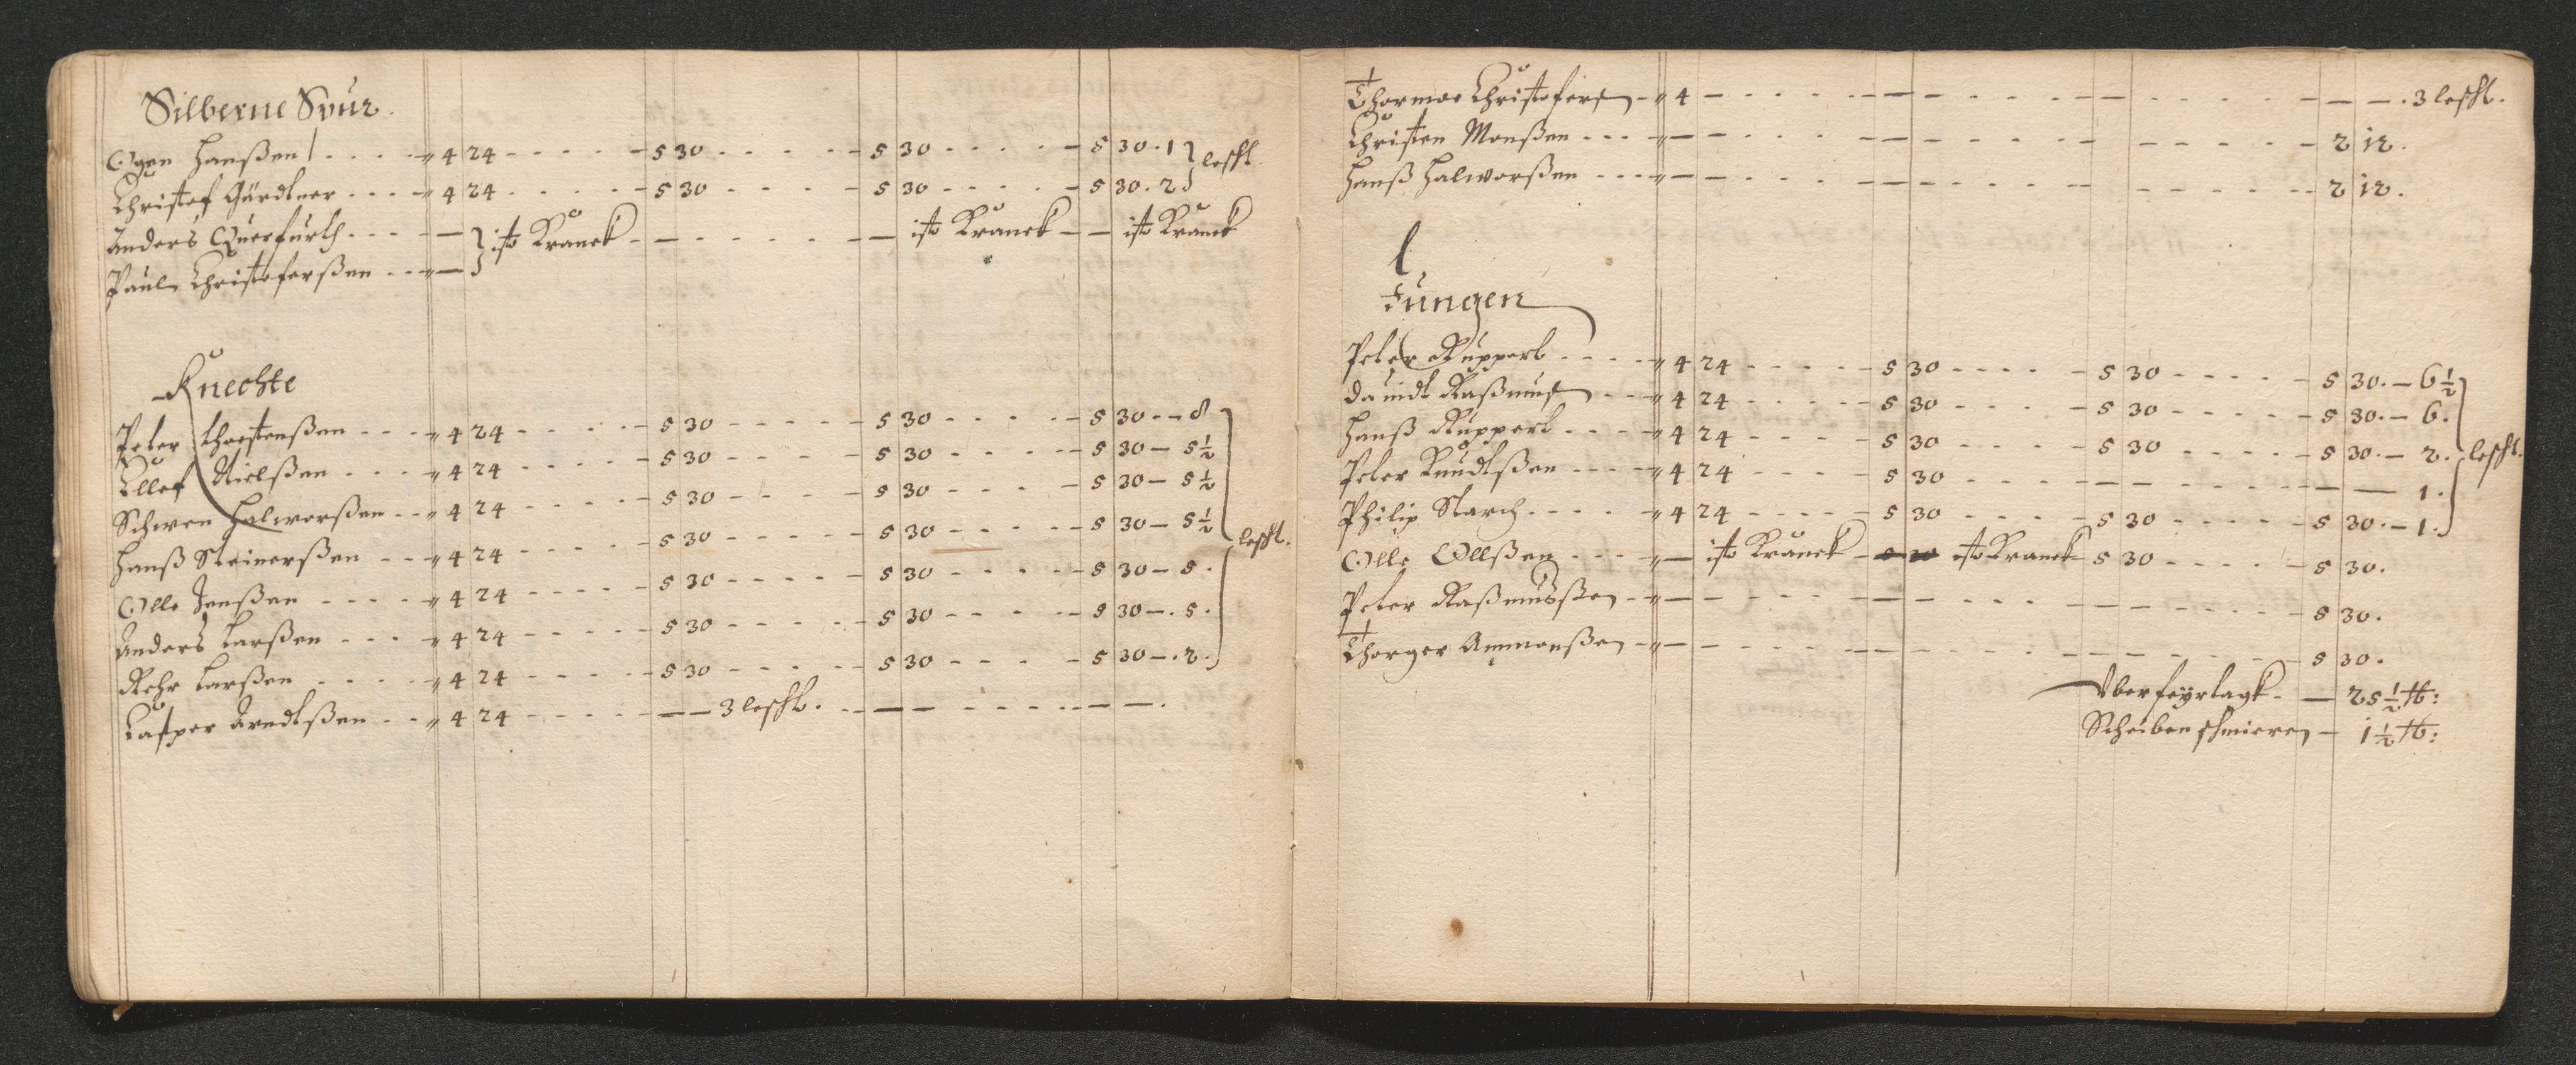 Silberne Spur.
Ogen Hanßen . . . . " 4 24 - - - - - 5 30 - - - - - 5 30 - - - - - 5 30 . 1 } lescht.
Christof Gärdtner . . . . " 4 24 - - - - - 5 30 - - - - - 5 30 - - - - - 5 30 . 2 }
Anders Querfurth . . . . — } ist Kranck - - - - - - — ist Kranck - — ist Kranck
Paul Christoferßen . . . " — }
Knechte
Peter Thorstenßen - - - " 4 24 - - - - - 5 30 - - - - - 5 30 - - - - - 5 30 . - 8
Ellef Nielßen - - - " 4 24 - - - - - 5 30 - - - - - 5 30 - - - - - 5 30 - 5½
Schwen Halworßen - - " 4 24 - - - - - 5 30 - - - - - 5 30 - - - - - 5 30 - 5½
Hanß Steinerßen - - - " 4 24 - - - - - 5 30 - - - - - 5 30 - - - - - 5 30 - 5½ } lescht.
Olle Jenßen - - - - " 4 24 - - - - - 5 30 - - - - - 5 30 - - - - - 5 30 - 5 .
Anders Larßen - - - " 4 24 - - - - - 5 30 - - - - - 5 30 - - - - - 5 30 - . 5 .
Rehr Larßen - - - - " 4 24 - - - - - 5 30 - - - - - 5 30 - - - - - 5 30 - . 2 .
Casper Arndtßen - - " 4 24 - - - - - — — 3 lescht . - - — — - - - - - — — .
Thormoe Christofersen - " 4 — - - - - — — - - - - — - - - - — — . 3 lescht .
Christen Monßen - - - " — — - - - - — — - - - - — - - - - - 2 12 .
Hanß Halworßen - - - " — — - - - - — — - - - - — - - - - - 2 12 .
Jungen
Peter Ruppert - - - - " 4 24 - - - - - 5 30 - - - - - 5 30 - - - - - 5 30 . - 6½
Dauidt Raßmus - - - " 4 24 - - - - - 5 30 - - - - - 5 30 - - - - - 5 30 . - 6 .
Hanß Ruppert - - - - " 4 24 - - - - - 5 30 - - - - - 5 30 - - - - - 5 30 . - 2 . } lescht .
Peter Knudtßen - - - " 4 24 - - - - - 5 30 - - - - — — - - - - — — 1 .
Philip Starch - - - - " 4 24 - - - - - 5 30 - - - - - 5 30 - - - - - 5 30 . - 1 .
Olle Ollßen - - - " — ist Kranck - 5 30 ist Kranck 5 30 - - - - - 5 30 .
Peter Raßmusßen - " — - - - - - — — - - - - — — - - - - - 5 30 .
Thorger Ammonßen - " — - - - - - — — - - - - — — - - - - - 5 30 .
Vber feyrtagk . — 25½ ℔ :
Scheiben schmieren — 1½ ℔ :